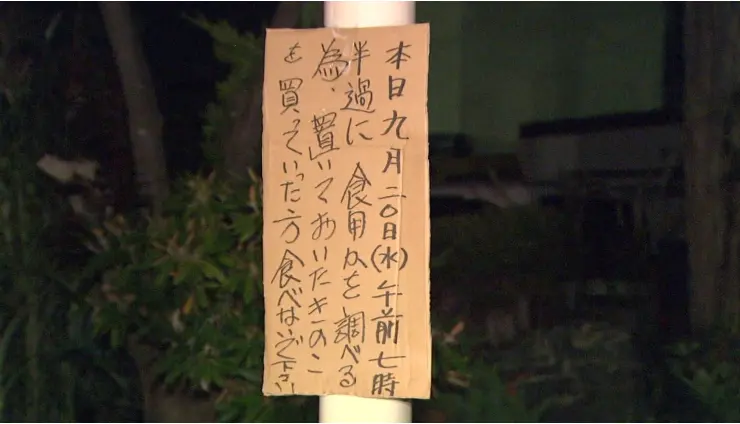 本日九月二〇日(水)午前七時
半過に食用かを調べる
為、置いておいたきのこ
を買っていった方食べないで下さい